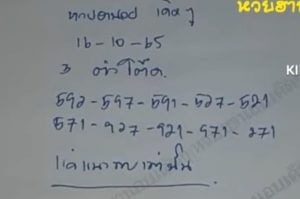 หวยฮา
หวยฮานอย เด็ดๆ
16-10-65
3 ตัวโต๊ด
592-597-591-527-521
571-927-921-971-271
แค่แนวทางเท่านั้น